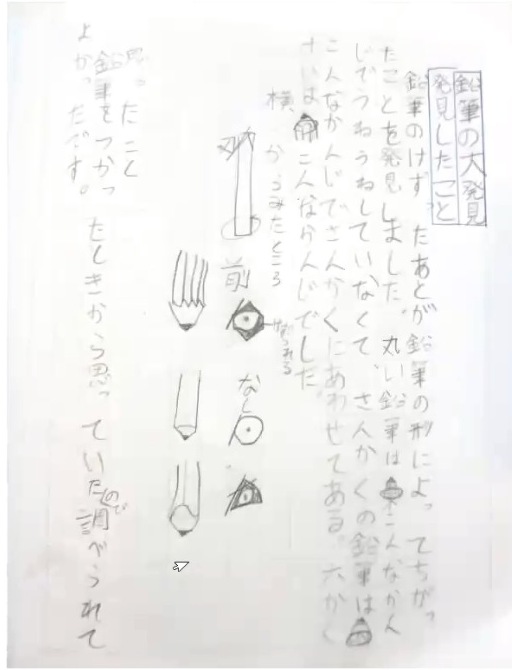 鉛筆の大発見
発見したこと
鉛筆のけずったあとが鉛筆の形によってちがっ
たことを発見しました。丸い鉛筆はこんなかん
じでうねうねしていなくて、さんかくの鉛筆は
こんなかんじでさんかくにあわせてある。六かく
けいはこんなかんじでした。
横からみたところ
けずられる
前
なし
思ったこと
鉛筆をつかったときから思っていたので調べられて
よかったです。